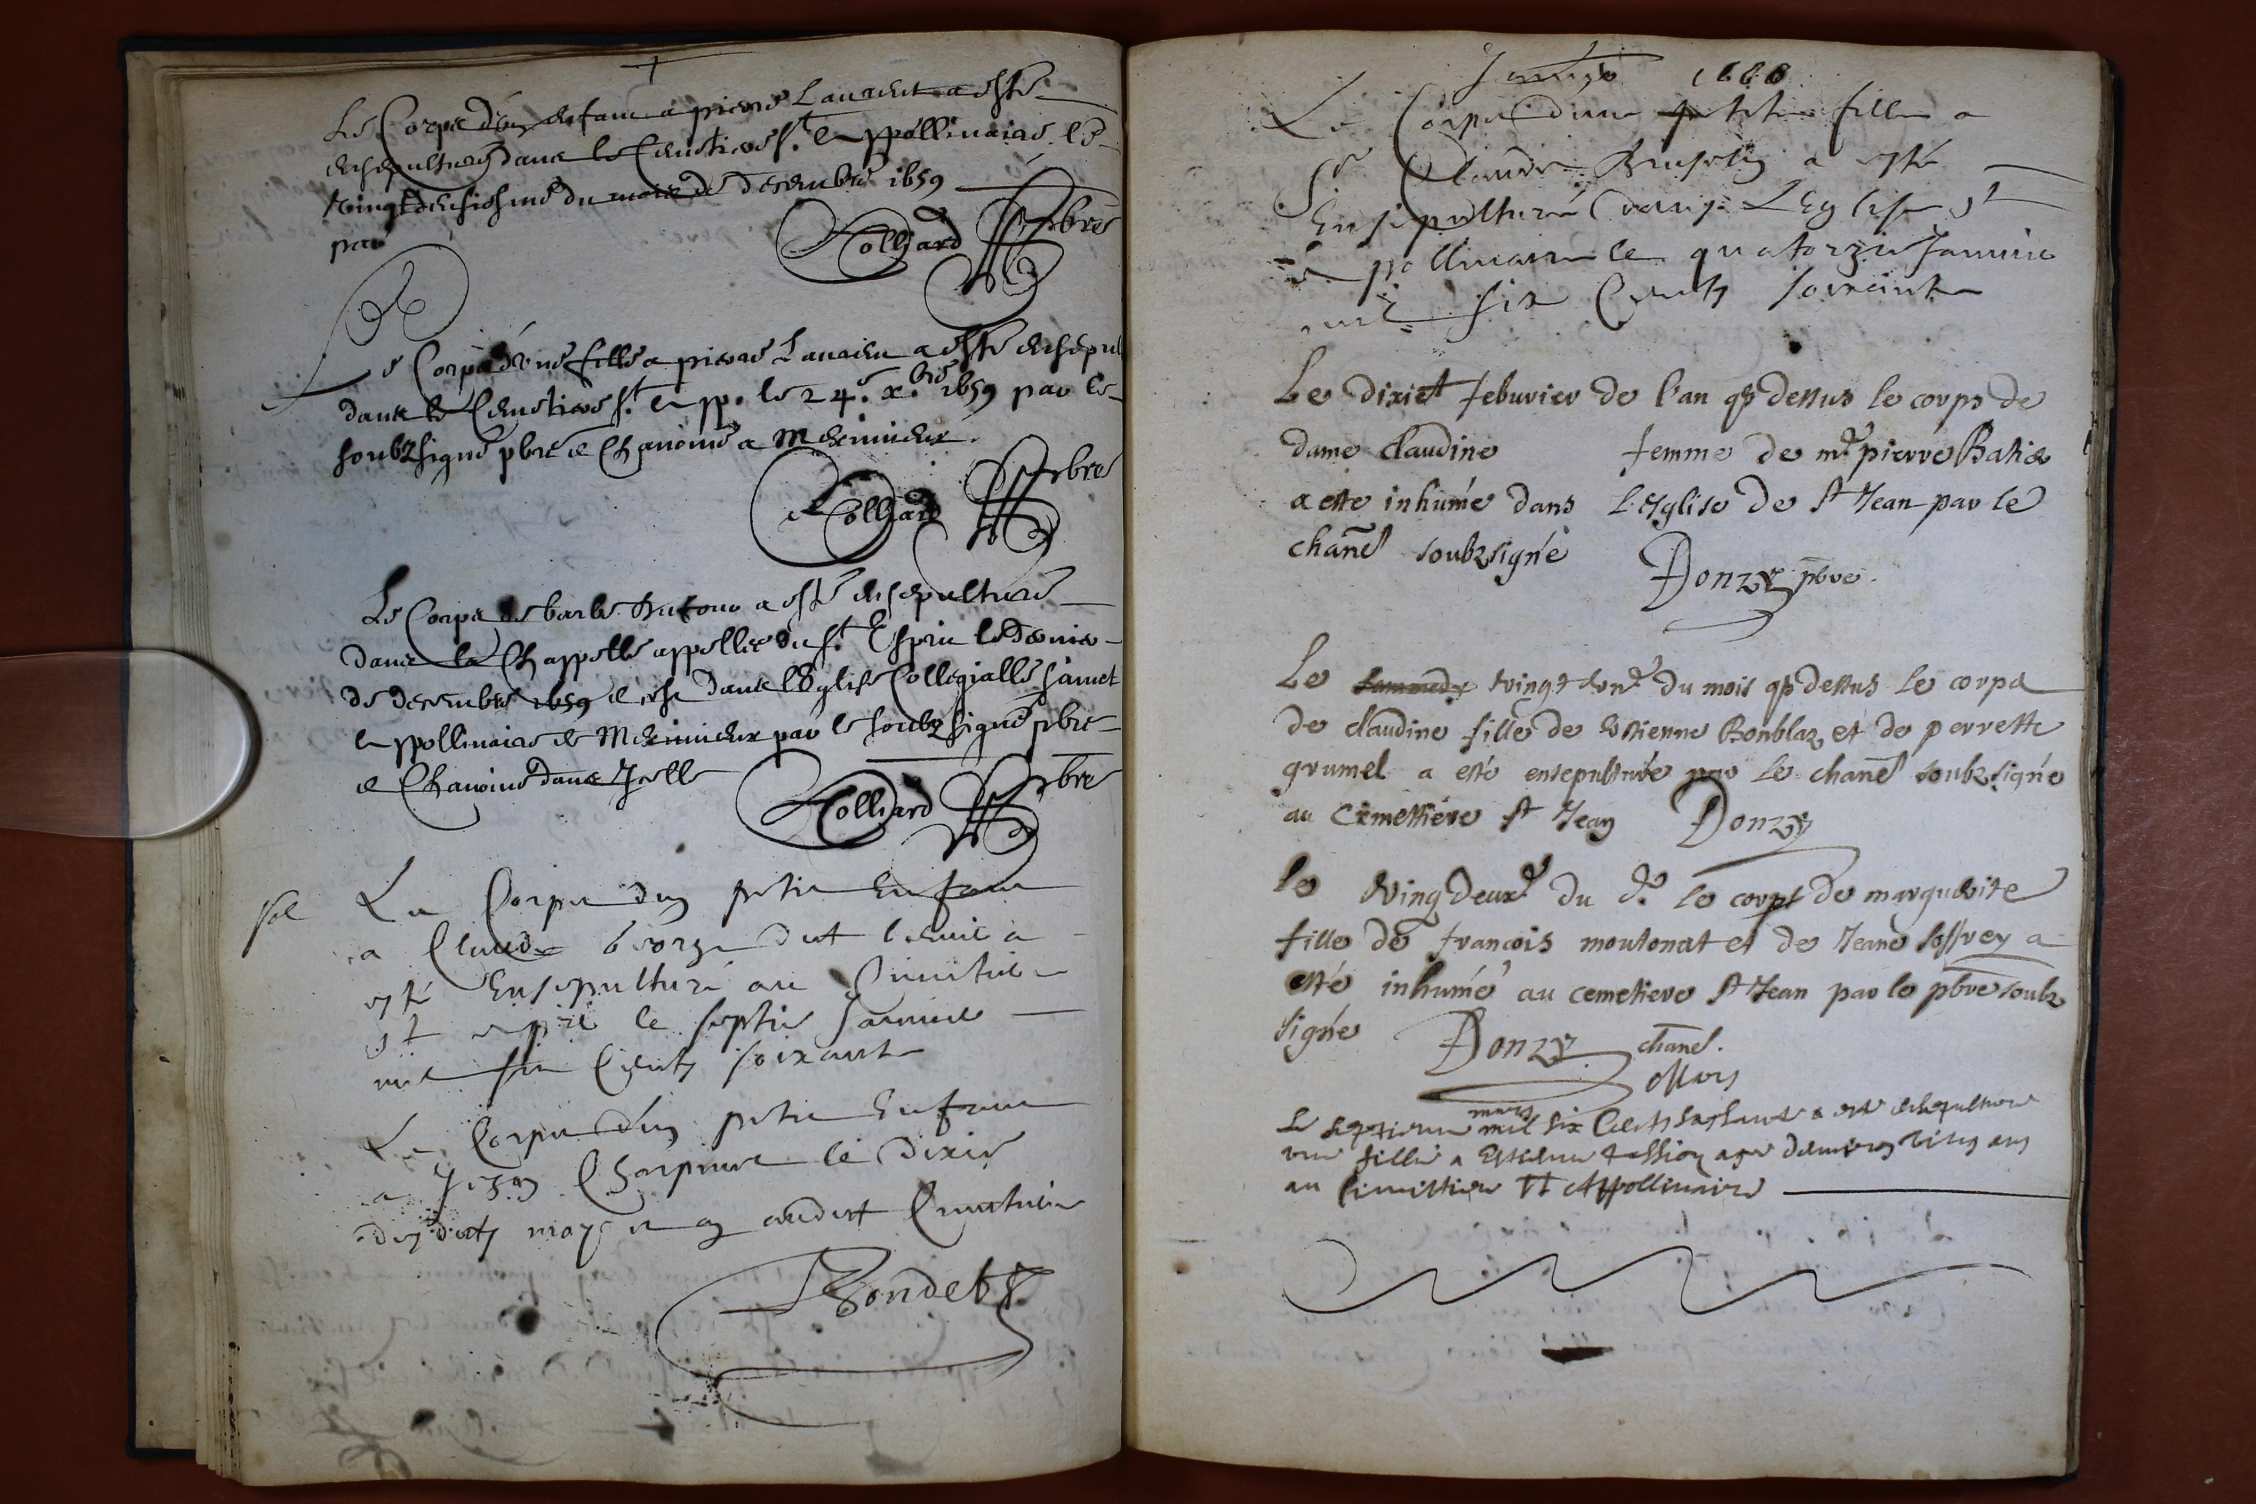 Le Corps d'un enfant a pierre Laurent a esté
ensepulturé dans le Cemetiere St. Appollinaire le
vingtdeusiesme du mois de decembre 1659
par Colliard pbre
Le Corps d'une fille a pierre Laurent a esté ensepul
dans le Cemetiere St. App. le 24e. xbre 1659 par le
soubzsigné pbre e Chanoine a Meximieux.
Colliard pbre
Le Corps de barbe a esté ensepulturé
dans la Chappelle appellee du St. Esprit le dernier
de decembre 1659 e ce dans l'Eglise Collegialle Sainct
Appollinaire de Meximieux par le soubzsigné pbre
e Chanoine dans Icelle
Colliard pbre
Le Corps dun petit Enfant
a Claude George dit a
esté Ensepulturé au Cimetiere
st le septie Janvier
mil six Cents soixante
Le Corps d'un petit Enfant
a Jehan Charpine le dixie
desdits moys et an audit Cimetiere
Bondet
Janvier 1660
Le Corps d'une petite fille a
Sr Claude a esté
Ensepulturé dans L'Eglise st
Appollinaire le quatorzie Janvier
mil six Cents soixante
Le dixiet febvrier de l'an qs dessus le corps de
dame claudine femme de me pierre
a este inhumé dans L'esglise de St Jean par le
chane soubzsigné
Donzy pbre.
Le vingt du mois qs dessus le corps
de claudine fille de Estienne Bonblaz et de perrette
grumel a esté ensepulturée par le chane soubzsigné
au Cemettiere St Jean Donzy
le vingdeuxe du d. le corps de marguerite
fille de francois moutonat et de Jeane Joffrey a
esté inhumé au cemetiere St Jean par le pbre soubz
signé Donzy chane.
Mars
Le septieme mars mil six Cents soixante a esté ensepulturé
une fille a Estienne age d'environ vingt ans
au Cimittiere St Appollinaire